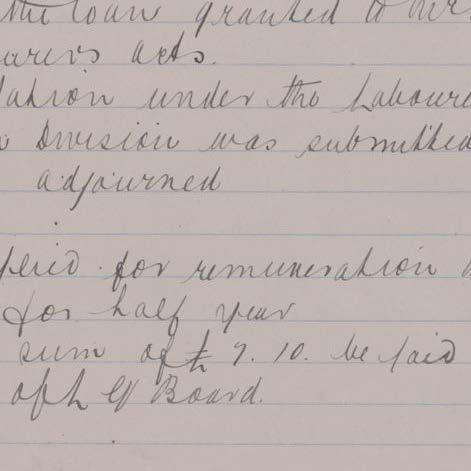 the loan granted to
urers acts.
lation under the Laboure
Division was submitted
adjourned
for remuneration
for half year
sum of £ 7. 10. be paid
of L G Board.